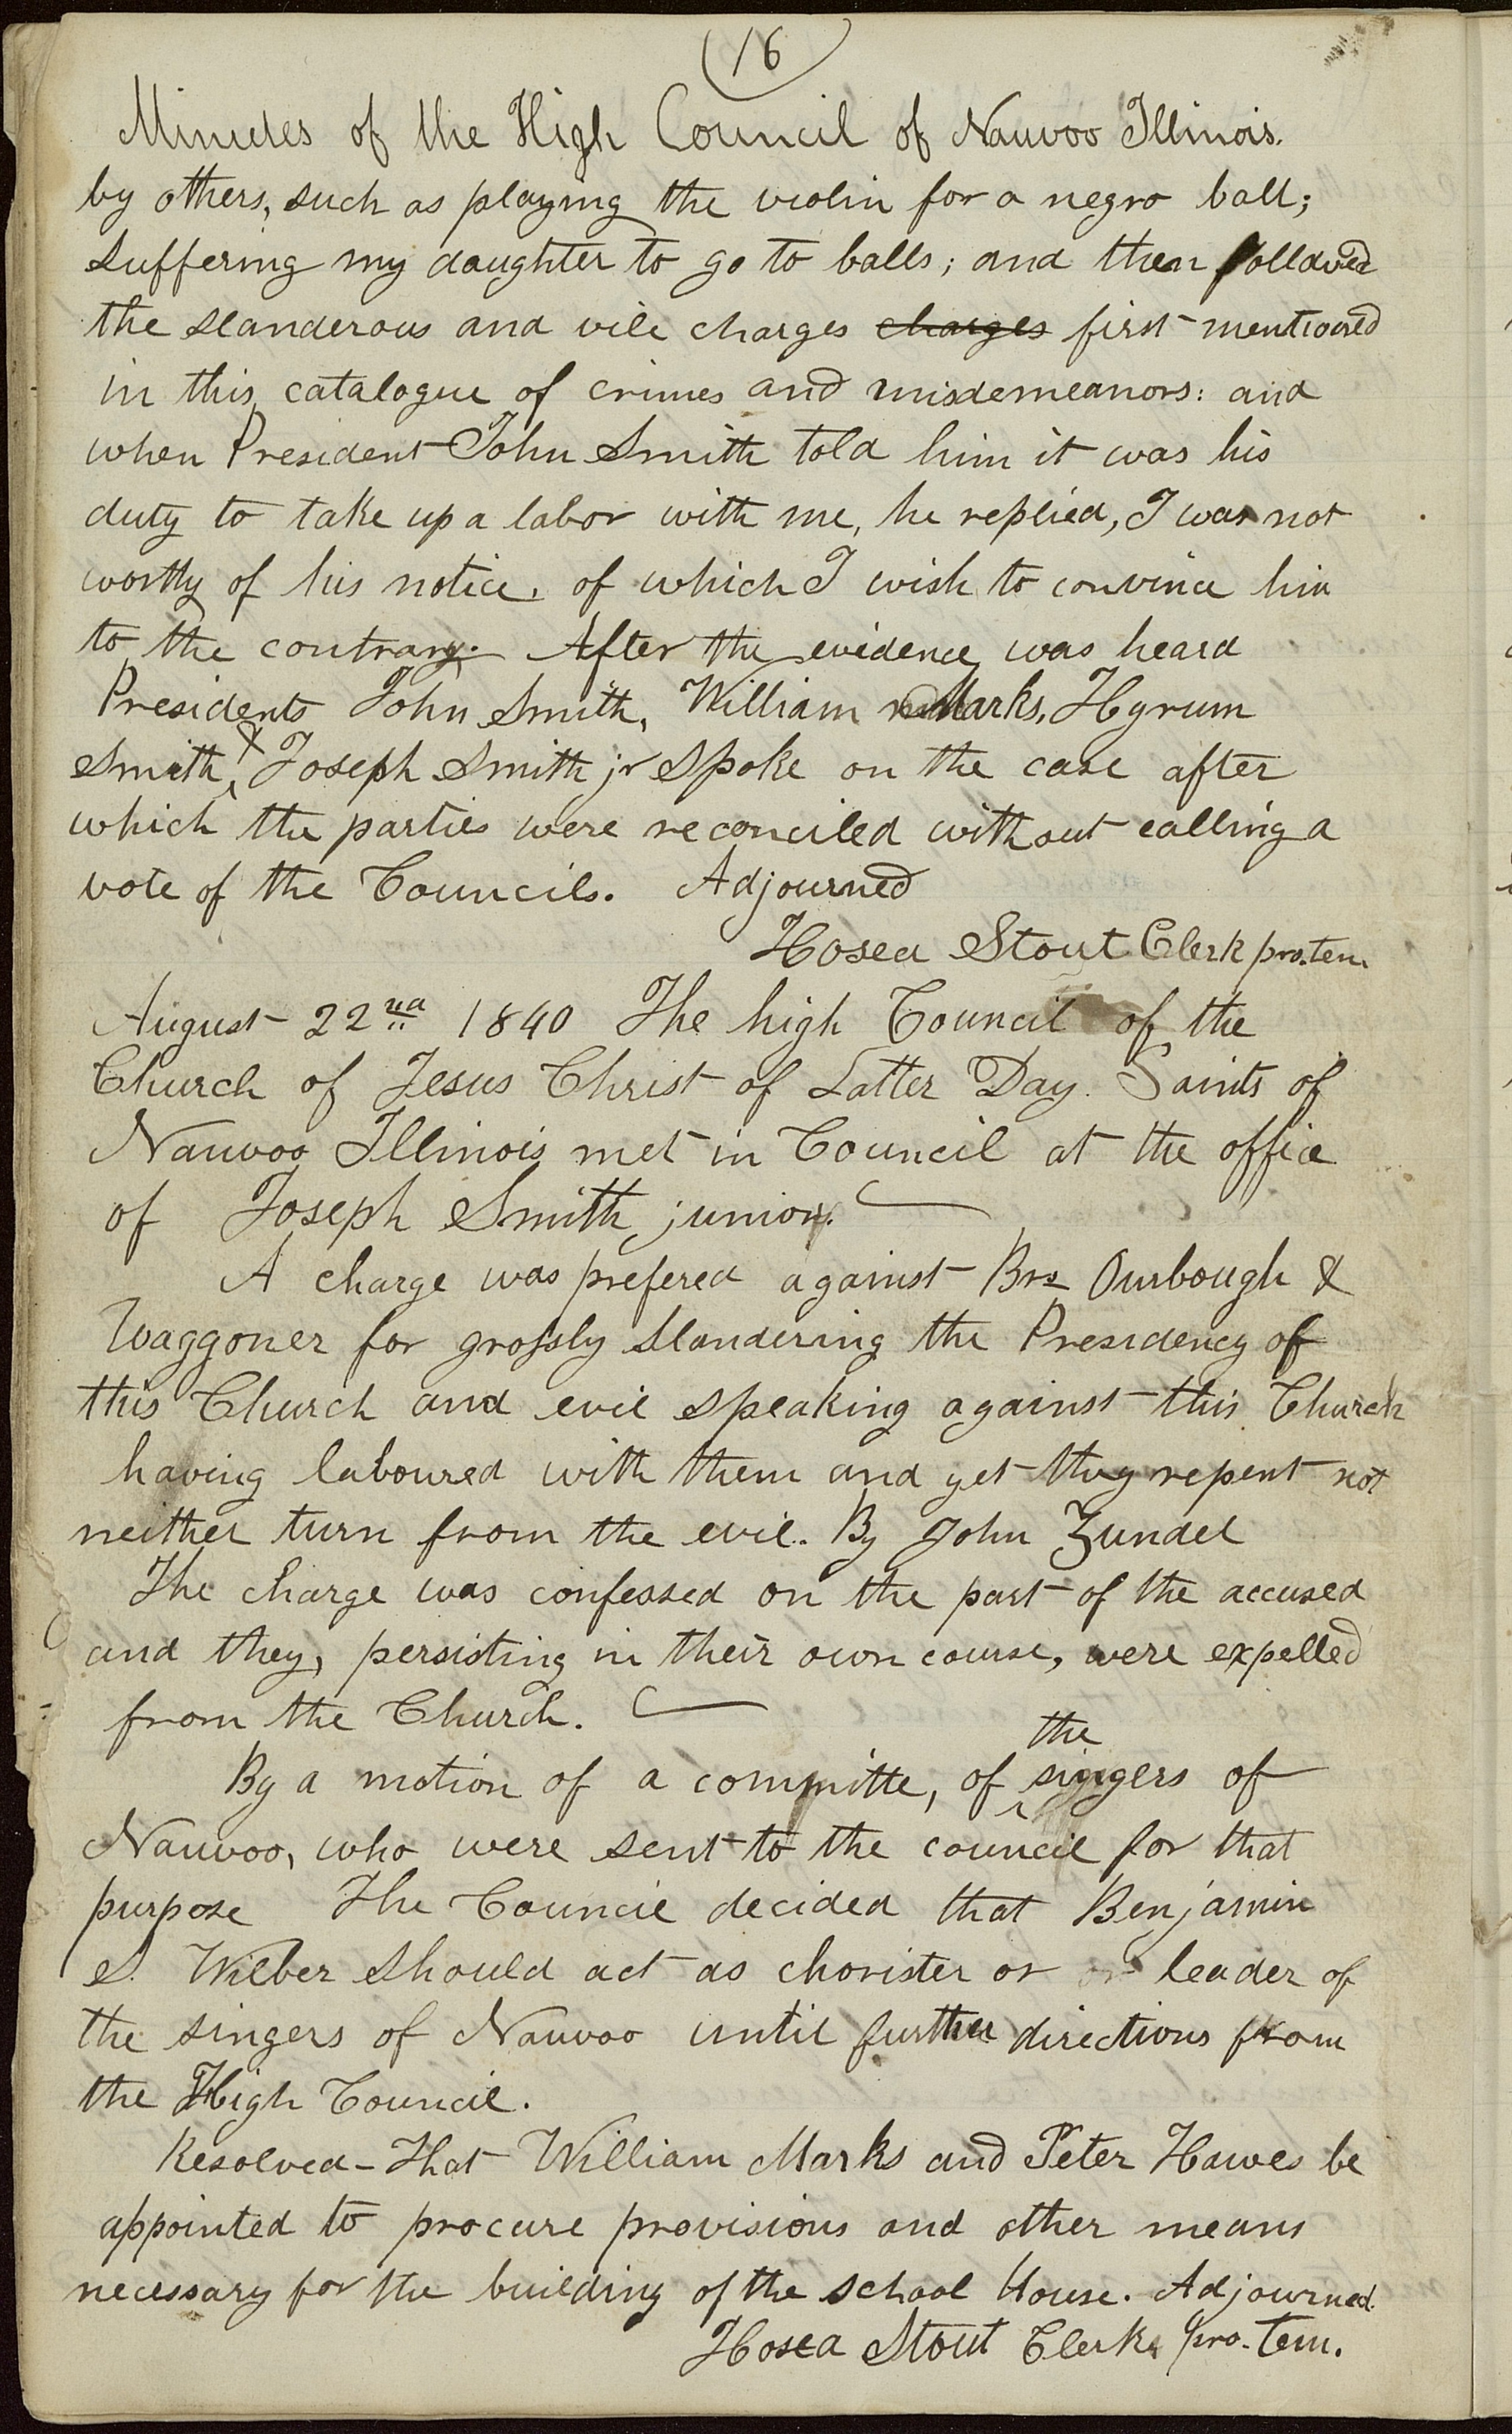 (16)
Minutes of the High Council of Nauvoo Illinois.
by others, such as playing the violin for a negro ball;
suffering my daughter to go to balls; and then followed
the slanderous and vile charges charges first mentioned
in this catalogue of crimes and misdemeanors: and
when President John Smith told him it was his
duty to take up a labor with me, he replied, I was not
worthy of his notice, of which I wish to convince him
to the contrary. After the evidence was heard
Presidents John Smith, William Marks, Hyrum
Smith, & Joseph Smith jr spoke on the case after
which the parties were reconciled without calling a
vote of the Councils. Adjourned
Hosea Stout Clerk pro.tem
August 22nd 1840 The high Council of the
Church of Jesus Christ of Latter Day Saints of
Nauvoo Illinois met in Council at the office
of Joseph Smith junior.
A charge was prefered against Brs Ourbough &
Waggoner for grossly slandering the Presidency of
this Church and evil speaking against this Church
having laboured with them and yet they repent not
neither turn from the evil. By John Zundel
The charge was confessed on the part of the accused
and they, persisting in their own course, were expelled
from the Church.
By a motion of a committe, of the singers of
Nauvoo, who were sent to the council for that
purpose The Council decided that Benjamin
S. Wilber should act as chorister or leader of
the singers of Nauvoo until further directions from
the High Council.
Resolved - That William Marks and Peter Hawes be
appointed to procure provisions and other means
necessary for the building of the school House. Adjourned.
Hosea Stout Clerk pro. tem.